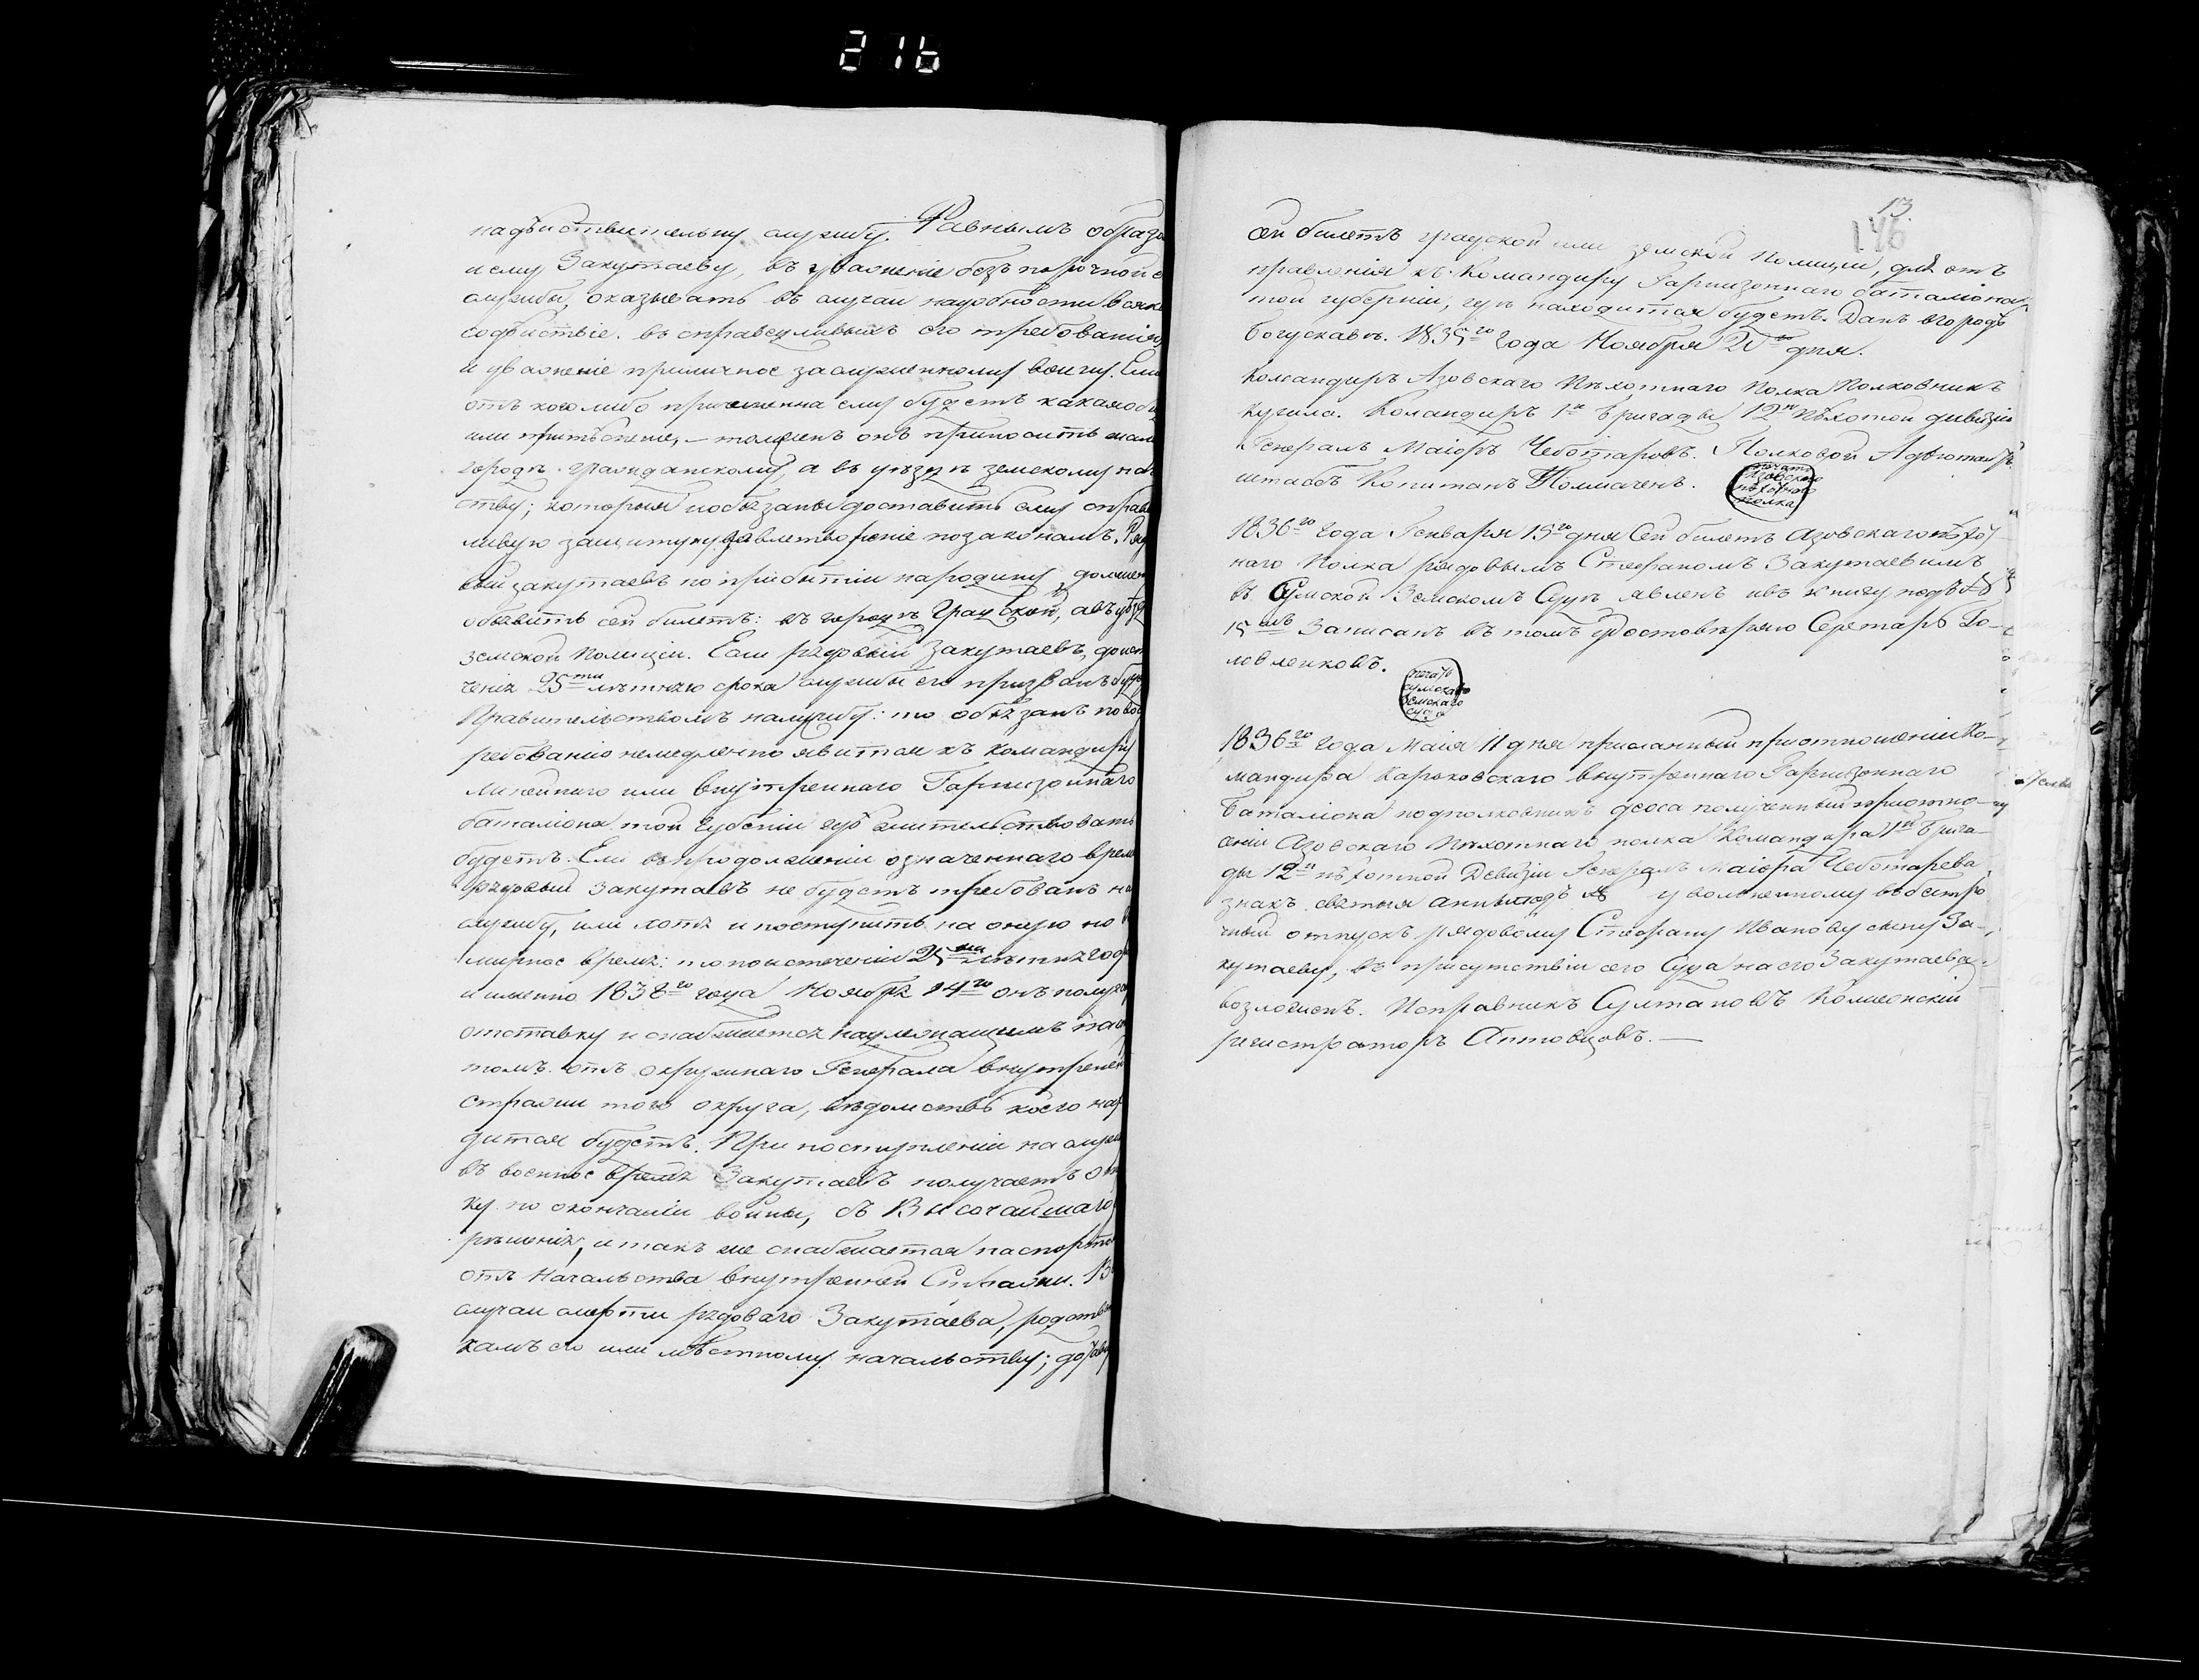 216
надѣйствительну службу. Равнымъ образо
и ему Закутаеву, въ уваженіе безъ порочной с
службы, оказывать въ случаи надобности всяк
содѣйствіе. въ справедливыхъ его требованія
и уваженіе приличное заслуженному воину. Если
отъ коголибо причиненна ему будетъ какая оби
или притѣсненіе, — толженъ онъ приносить жал
городѣ гражданскому, а въ уѣздѣ земскому на
ству; которыя иобязаны доставить ему справед
ливую защиту и удавлетвореніе позаконамъ. Ряд
вый закутаевъ по прибытіи народину, должен
объявить сей билетъ: въ городѣ Градской, авъ уѣзд
земской Полиціи. Если рядовый Закутаевъ, доист
ченія 25ти лѣтняго срока службы его призванъ буд
Правительствомъ наслужбу: то обязанъ по вост
ребованію немедленно явится къ командиру
Линейнаго или внутренняго Гарнизоннаго
баталіона той губеніи гдѣ жительствовать
будетъ. Если въ продолженіи означеннаго врем
рядовый Закутаевъ не будетъ требованъ на
службу, или хотя и поступитъ на оную но в
мирное время: то поистеченіи 25ти лѣтнихъ год
и именно 1838го года Ноября 14го онъ получа
отставку и снабжается надлежащимъ пасп
томъ. отъ окружнаго Генерала внутренней
стражи того округа, вѣдомствѣ коего нах
дится будетъ. При поступленіи на служ
въ военное время Закутаевъ получаетъ от
ку по окончаніи войны, съ Высочайшаго
рѣшенія, и такъ же снабжается паспорто
отъ Начальства внутренней Стражи. В
случаи смерти рядоваго Закутаева, родствен
камъ его или мѣстному начальству; доставить
13.
146
сей билетъ градской или земской Полиции, для от
правленія къ Командиру Гарнизоннаго баталіона
той губерніи, гдѣ находится будетъ. Данъ вгородѣ
Богуславѣ. 1835го года Ноября 20го дня.
Командиръ Азовскаго Пѣхотнаго Полка Полковникъ
Кугила. Командиръ 1й Бригады 12й Пѣхотой дивизіи
Генералъ Маіоръ Чеботаровъ. Полковой Адьютантъ
штабсъ Копитанъ Толмаченъ.
печать Азовскаго пѣхотнаго полка
1836го года Генваря 15го дня Сей билетъ Азовскаго пѣхот
наго Полка рядовымъ Стефаномъ Закутаевимъ
въ Сумской Земскомъ Судѣ явленъ ивъ книгу подъ №
15мъ Записанъ въ томъ удостовѣряю Серетарь Го-
ловленковъ.
печать сумскаго земскаго суда
1836го Года Маія 11 дня присланный приотношеніи Ко-
мандира Харьковскаго внутренняго Гарнизоннаго
баталіона подполковникъ деоса полученный приотно-
шеніи Азовскаго Пѣхотнаго полка Командира 1й Брига-
ды 12й пѣхотной Девизіи Генералъ Маіора Чеботарева,
знакъ святыя анны подъ № уволненному въбезсро
чный отпускъ рядовому Стефану Иванову сыну За-
кутаеву, въ присутствіи сего Суда на его Закутаева
возложенъ. Исправникъ Султановъ Колиежскій
регистраторъ Антовцовъ. —